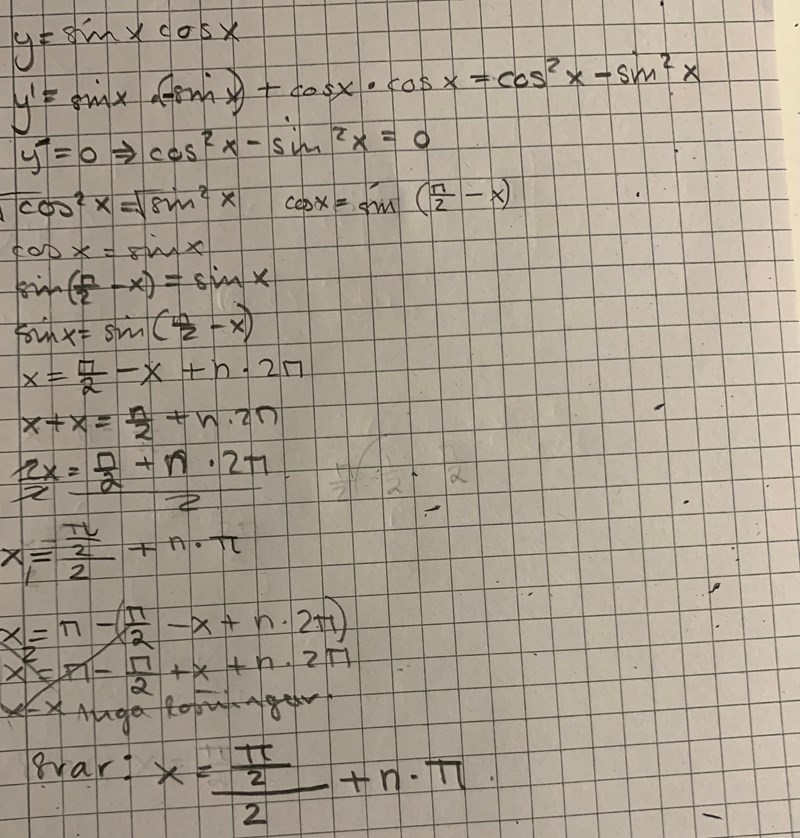 y = sin x cos x
y' = sin x (-sin x) + cos x · cos x = cos² x - sin² x
y' = 0 ⇒ cos² x - sin² x = 0
√cos² x = √sin² x    cos x = sin (π/2 - x)
cos x = sin x
sin(π/2 - x) = sin x
sin x = sin (π/2 - x)
x = π/2 - x + n · 2π
x + x = π/2 + n · 2π
2x/2 = (π/2 + n · 2π)/2
x₁ = (π/2)/2 + n · π
x₂ = π - (π/2 - x + n · 2π)
x = π - π/2 + x + n · 2π
x - x
Svar: x = (π/2)/2 + n · π